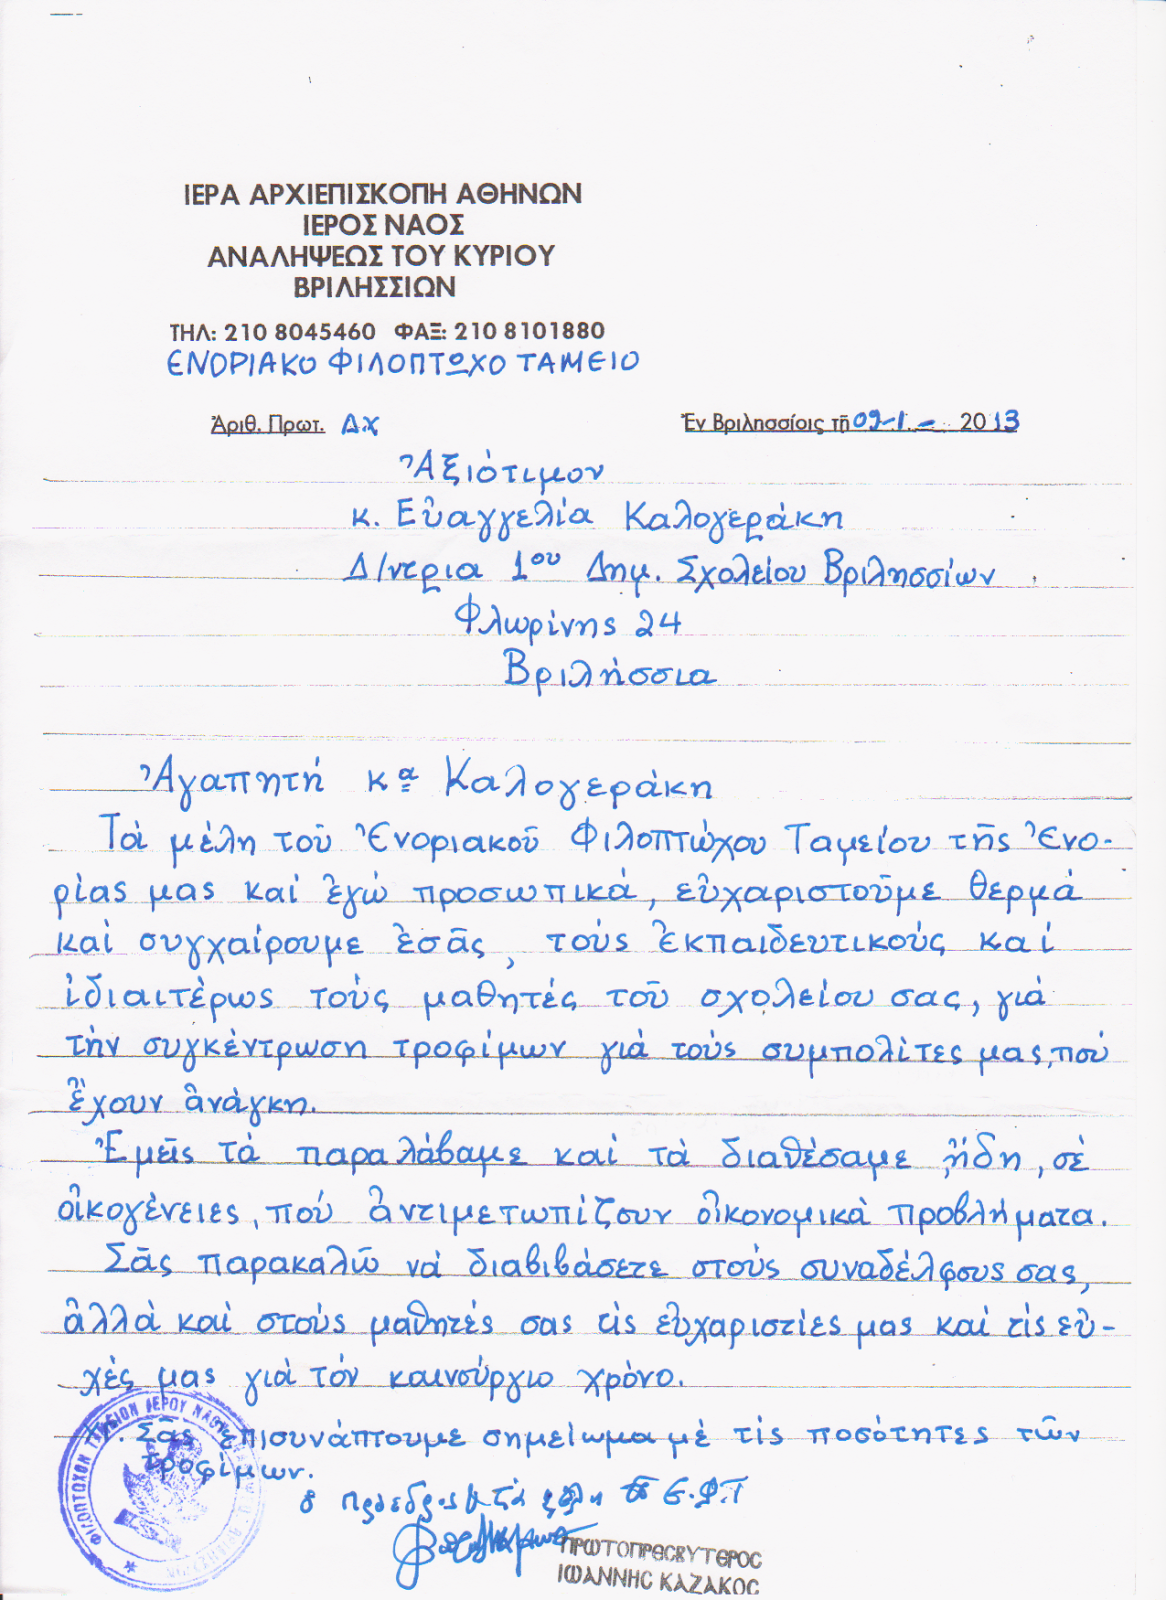 ΙΕΡΑ ΑΡΧΙΕΠΙΣΚΟΠΗ ΑΘΗΝΩΝ
ΙΕΡΟΣ ΝΑΟΣ
ΑΝΑΛΗΨΕΩΣ ΤΟΥ ΚΥΡΙΟΥ
ΒΡΙΛΗΣΣΙΩΝ
ΤΗΛ: 210 8045460 ΦΑΞ: 210 8101880
ΕΝΟΡΙΑΚΟ ΦΙΛΟΠΤΩΧΟ ΤΑΜΕΙΟ
Ἀριθ. Πρωτ. ΔΧ Ἐν Βριλησσίοις τῇ 09-1.- 2013
Ἀξιότιμον
κ. Εὐαγγελία Καλογεράκη
Δ/ντρια 1ου Δημ. Σχολείου Βριλησσίων
Φλωρίνης 24
Βριλήσσια
Ἀγαπητή κα Καλογεράκη
Τά μέλη τοῦ Ἐνοριακοῦ Φιλοπτώχου Ταμείου τῆς Ἐνο-
ρίας μας καί ἐγώ προσωπικά, εὐχαριστοῦμε θερμά
καί συγχαίρουμε ἐσᾶς, τούς ἐκπαιδευτικούς καί
ἰδιαιτέρως τούς μαθητές τοῦ σχολείου σας, γιά
τήν συγκέντρωση τροφίμων γιά τούς συμπολίτες μας, πού
ἔχουν ἀνάγκη.
Ἐμεῖς τά παραλάβαμε καί τά διαθέσαμε ἤδη, σέ
οἰκογένειες, πού ἀντιμετωπίζουν οἰκονομικά προβλήματα.
Σᾶς παρακαλῶ νά διαβιβάσετε στούς συναδέλφους σας,
ἀλλά καί στούς μαθητές σας τίς εὐχαριστίες μας καί τίς εὐ-
χές μας γιά τόν καινούργιο χρόνο.
Σᾶς ἐπισυνάπτουμε σημείωμα μέ τίς ποσότητες τῶν
τροφίμων.
ὁ Πρόεδρος τά μέλη τοῦ Ε.Φ.Τ
ΠΡΩΤΟΠΡΕСΒΥΤΕΡΟС
ΙΩΑΝΝΗС ΚΑΖΑΚΟС